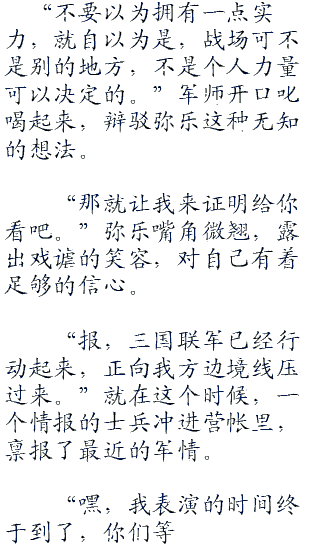 “不要以为拥有一点实
力，就自以为是，战场可不
是别的地方，不是个人力量
可以决定的。”军师开口叱
喝起来，辩驳弥乐这种无知
的想法。
“那就让我来证明给你
看吧。”弥乐嘴角微翘，露
出戏谑的笑容，对自己有着
足够的信心。
“报，三国联军已经行
动起来，正向我方边境线压
过来。”就在这个时候，一
个情报的士兵冲进营帐里，
禀报了最近的军情。
“嘿，我表演的时间终
于到了，你们等